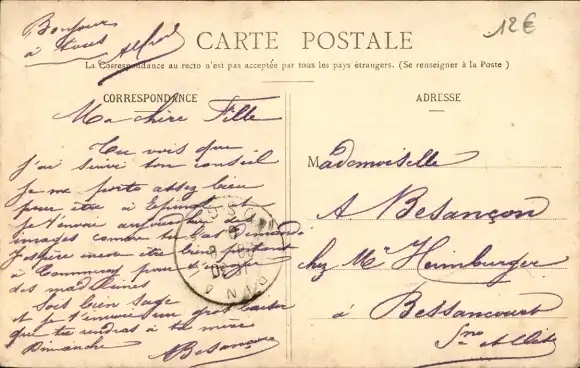 Bonjour
à tous Alfred
12€
CARTE POSTALE
La Correspondance au recto n'est pas acceptée par tous les pays étrangers. (Se renseigner à la Poste)
CORRESPONDANCE
Ma chère Fille
Tu vois que
j'ai suivi ton conseil
je me porte assez bien
pour être à Epinal et
je t'envoie aujourd'hui des
images comme tu
J'espère encore être bien portant
à Commercy pour
des madeleines
Sois bien sage
et je t'envoie un gros baiser
que tu rendras à ta mère
Dimanche A Besançon
ADRESSE
Mademoiselle
A Besançon
chez Mr Heimburger
à Bessancourt
Sne et Oise